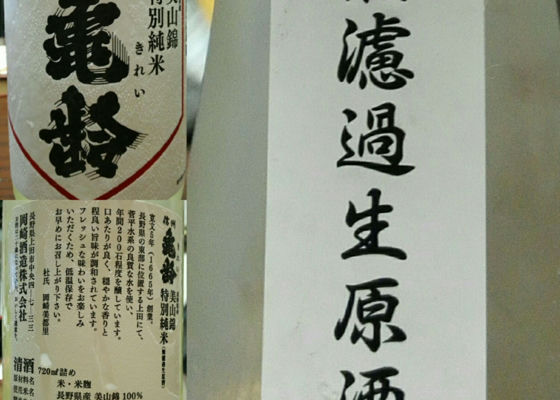 美山錦
特別純米
亀齢
きれい
濾過生原酒
信州
亀齢
美山錦
特別純米
寛文5年(1665年)創業。
長野県の東部に位置する上田にて、
菅平水系の良質な水を使い、
年間200石程度を醸しています。
口あたりが良く、穏やかな香りと
程良い旨味が調和されています。
フレッシュな味わいをお楽しみ
いただくため、低温保存で
お早めにお召し上がり下さい。
杜氏 岡崎美都里
岡崎酒造株式会社
長野県上田市中央四-七-三三
清酒
720ml詰め
原材料名
米・米麹
使用米名
長野県産 美山錦 100%